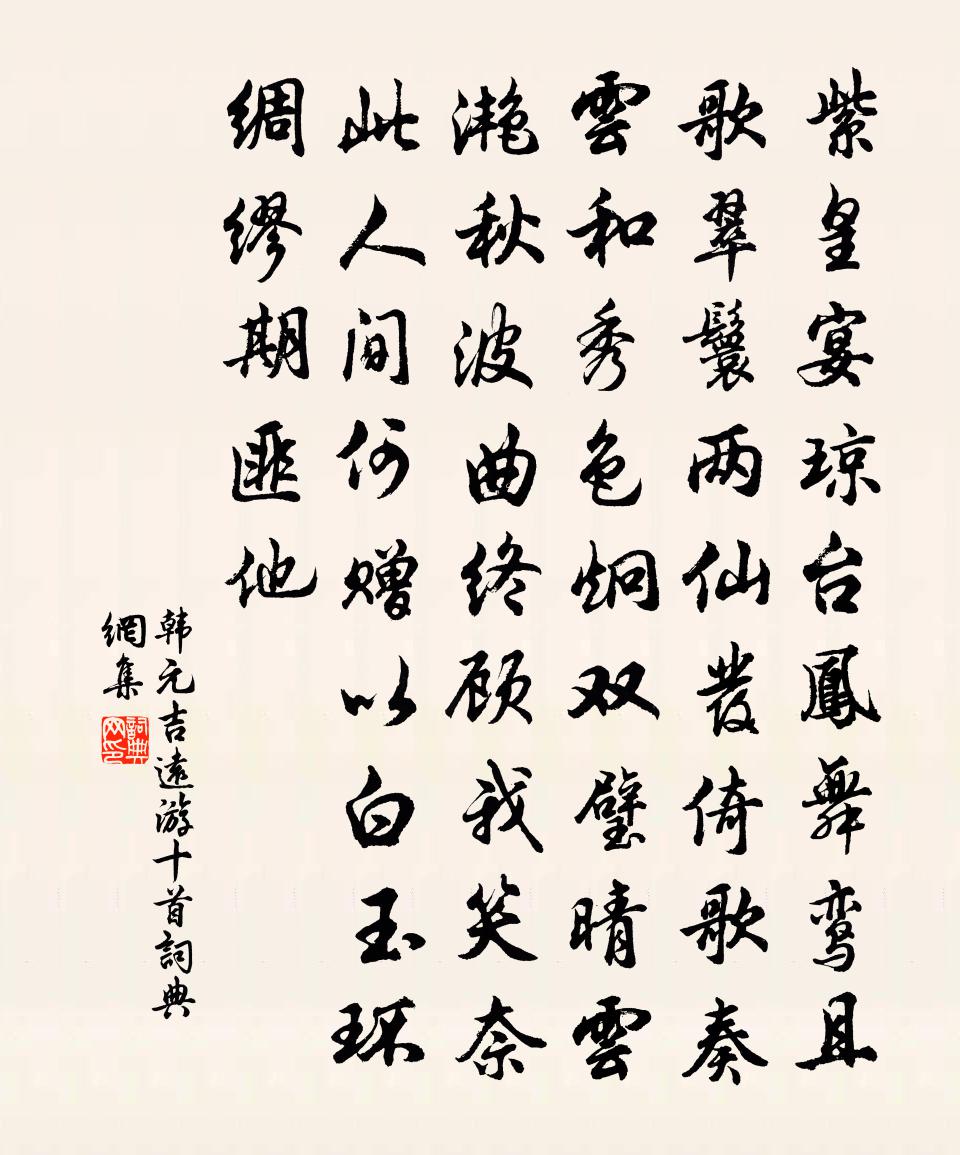 紫皇宴琼台鳳舞鸾且
歌翠鬟两仙发倚歌奏
雲和秀色炯双璧晴雲
滟秋波曲终顾我笑奈
此人间何赠以白玉环
绸缪期匪他
韩元吉遠游十首詞典
網集
詞典网印